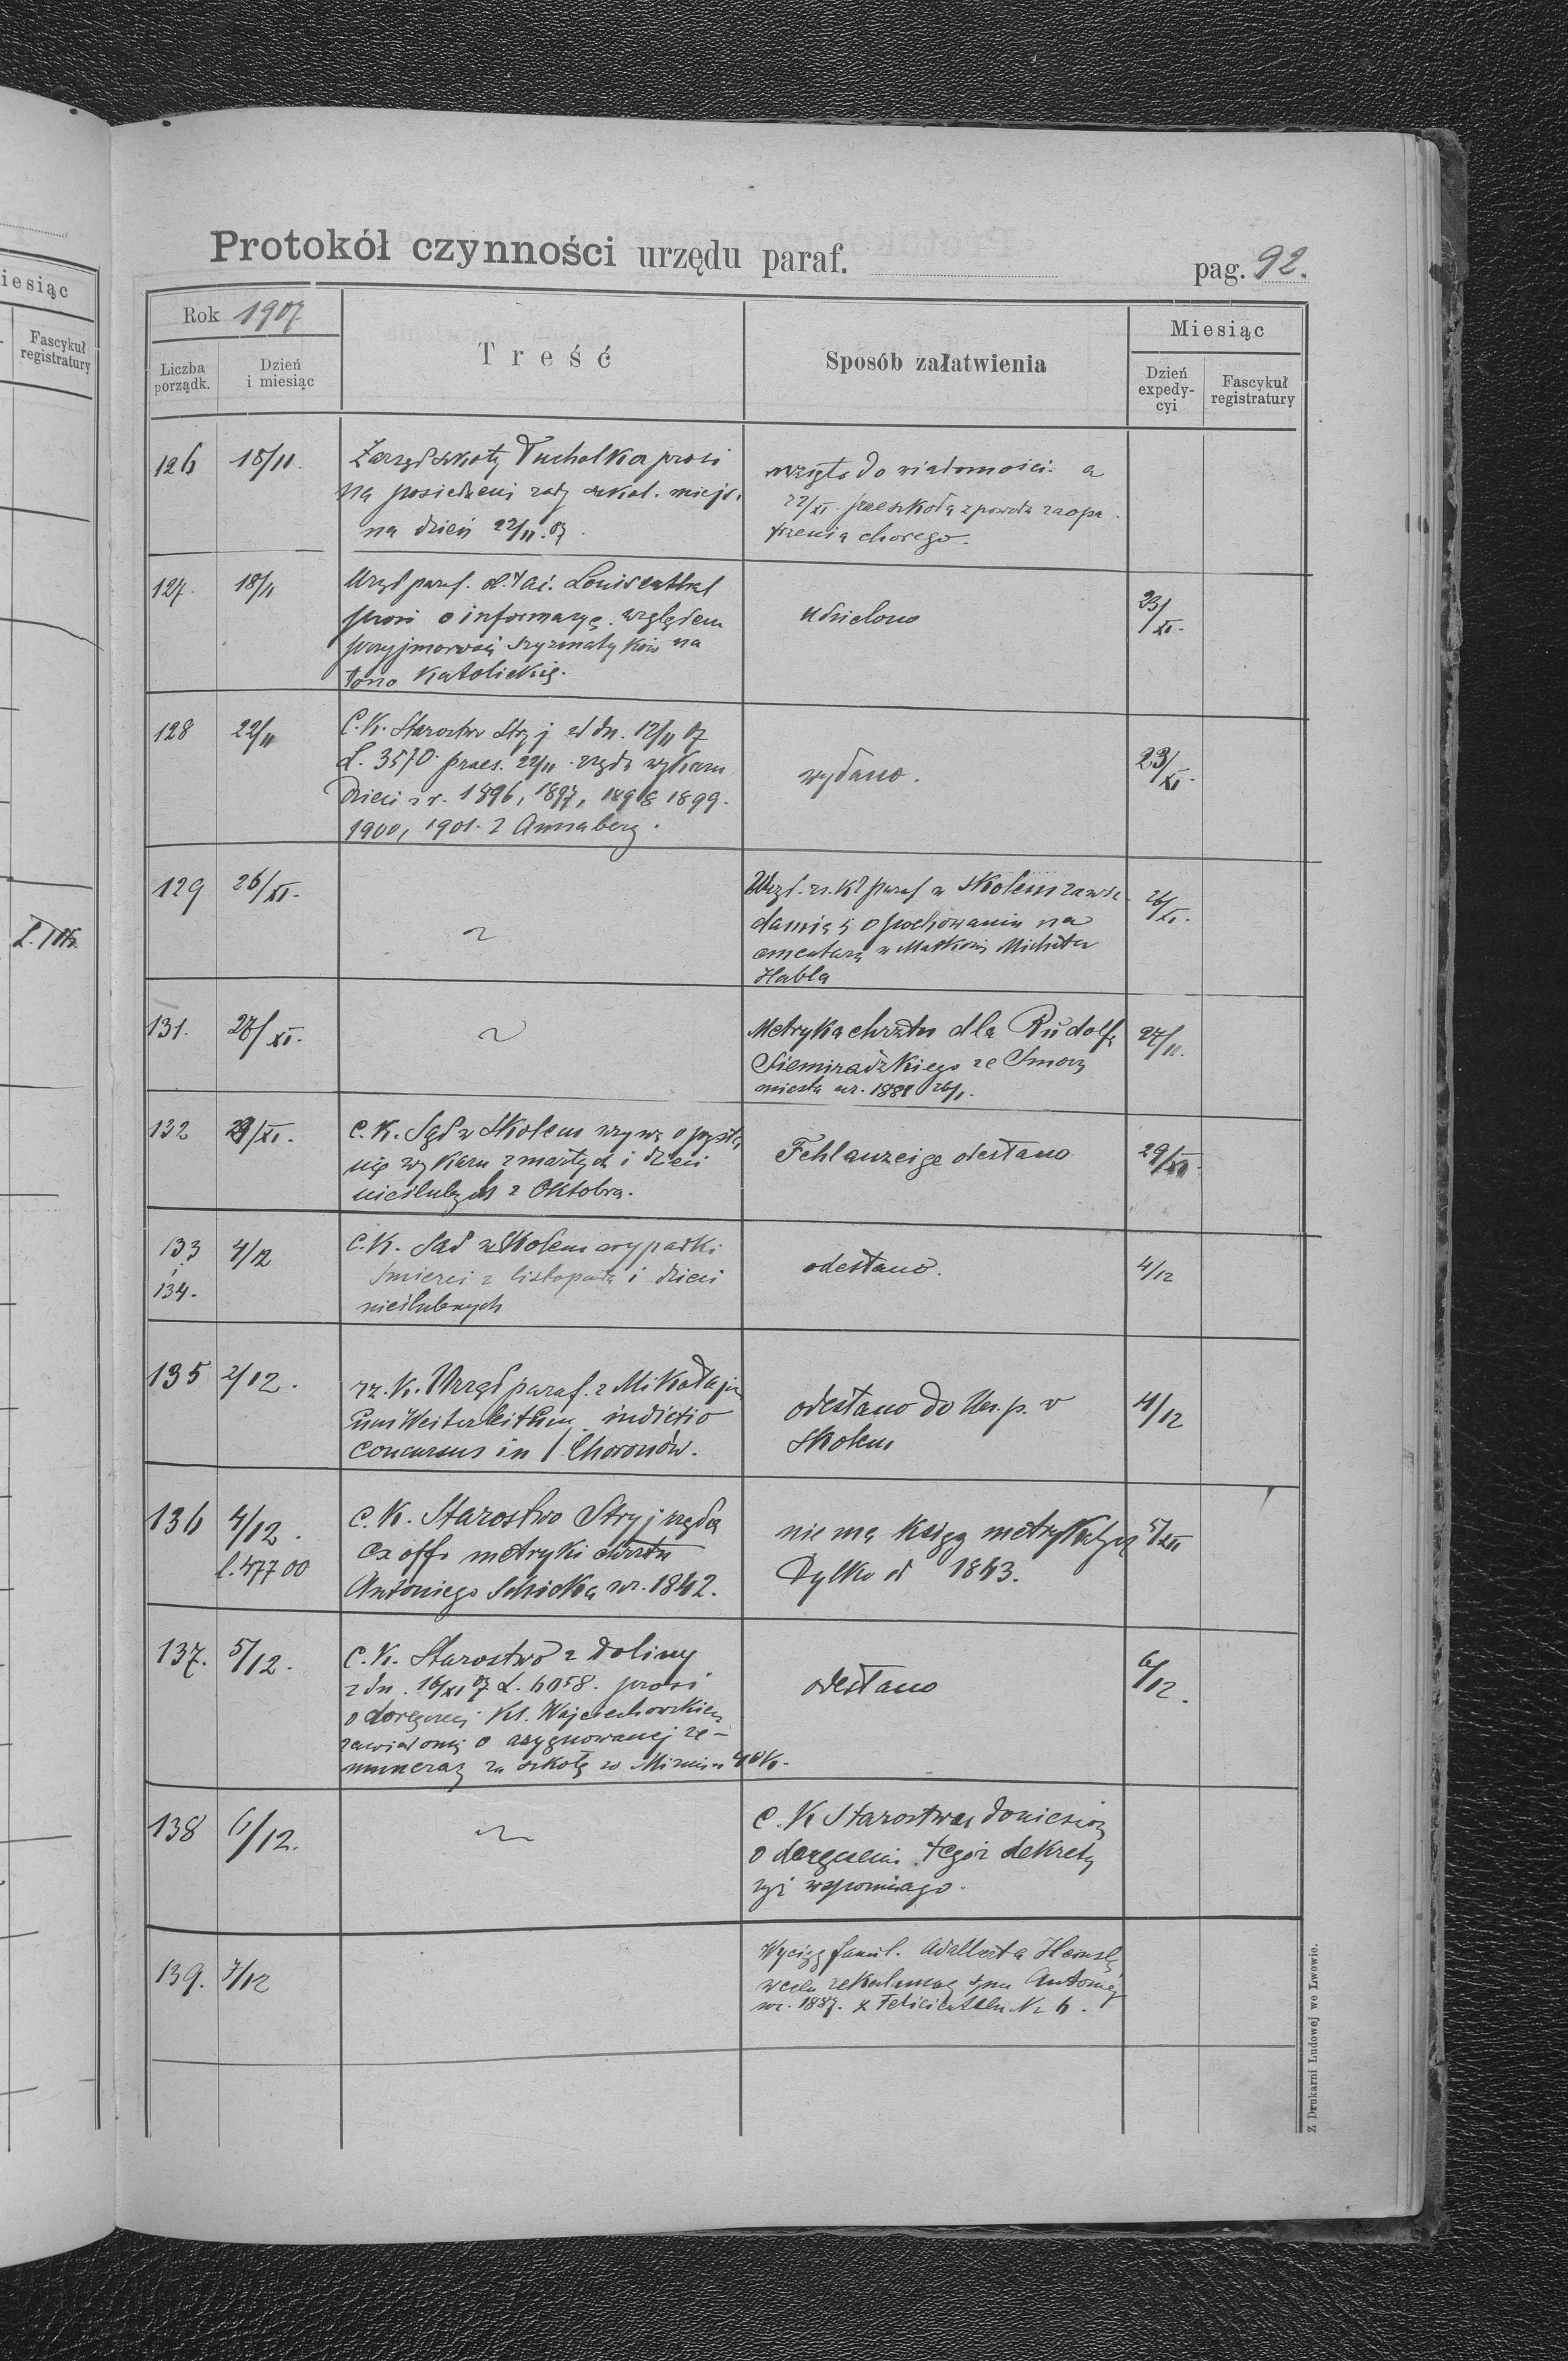 iesiąc
Fascykuł
registratury
Protokół czynności urzędu paraf.
pag. 92.
Rok 1907
Liczba
porządk.
Dzień
i miesiąc
Treść
Sposób załatwienia
Miesiąc
Dzień
expedy-
cyi
Fascykuł
registratury
126 18/11.
Zarząd szkoły Tucholka prosi
na posiedzeni rady szkol. miejs.
na dzień 22/11.07.
wzięto do wiadomości a
22/XI. przeszkoda z powodu zaopa-
trzenia chorego.
127. 18/11
Urząd paraf. Louisenthal
prosi o informacyę względem
przyjmowania szyzmatyków na
łono Katolickie.
udzielono
23/XI.
128 22/11
C.K. Starostwo Stryj z dn. 12/11 07
L. 3570 praes. 22/11 żąda wykazu
Dzieci z r. 1896, 1897, 1898 1899.
1900, 1901. z Annaberg.
wydano.
23/XI.
129 26/XI.
~
Urząd paraf w Skolem zawia-
damia o pochowaniu na
cmentarzu w Michała
Habla
26/XI.
131. 27/XI.
~
Metryka chrztu dla Rudolfa
Siemiradzkiego ze Smorz
miasta ur. 1881
27/11.
132 29/XI.
C.K. Sąd w Skolem wzywa o przesła
nie wykazu zmarłych i dzieci
nieślubnych z Oktobra.
Fehlanzeige odesłano
29/XI.
133 4/12
i
134.
C.K. Sąd w Skolem wypadki
Śmierci z listopada i dzieci
nieślubnych
odesłano.
4/12
135 2/12.
rz. K. Urząd paraf. z Mikołaja
cum indictio
concursus in Choronów.
odesłano do Urz. p. w
Skolem
4/12
136 4/12.
l. 47700
C.K. Starostwo Stryj żąda
ex offo metryki chrztu
Antoniego Schicka ur. 1842.
nie ma księgi metrykalnej
Tylko od 1843.
5/XII
137. 5/12.
C.K. Starostwo z Doliny
z dn. 16/XI 07 L. 6058. prosi
o doręczeni Ks. Wojciechowskiemu
zawiadomie o asygnowanej re-
muneracyi za szkołę w Mizuniu 40 K.
odesłano
6/12.
138 6/12.
~
C.K Starostwu doniesiono
o doręczeniu tegoż dekretu
139. 7/12
Wyciąg famil. Adalberta
w celu reklamacyi syna Antoniego
ur. 1887. z Felicienthalu Nr 6.
Z Drukarni Ludowej we Lwowie.